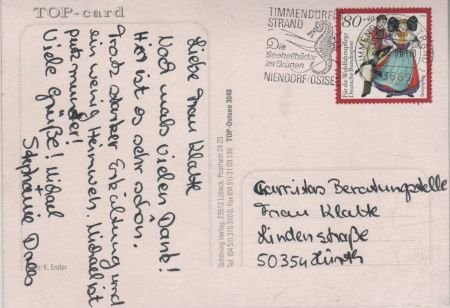 TOP-card
Liebe Frau Klatte
Noch mals vielen Dank!
Hier ist es sehr schön.
Trotz starker Erkältung und
ein wenig Heimweh. Michael ist
putzmunter!
Viele Grüße! Michael
Stephanie
K. Ender
Schöning Verlag, 23512 Lübeck, Postfach 24 23
Tel. (04 51) 310 31 00, Fax (04 51) 31 03 130 TOP-Ostsee 3048
TIMMENDORFER
STRAND
Die
Seeheilbäder
im Grünen
NIENDORF/OSTSEE
80+40
Für die Wohlfahrtspflege
Deutsche Bundespost
Caritas Beratungsstelle
Frau Klatte
Lindenstraße
50354 Hürth